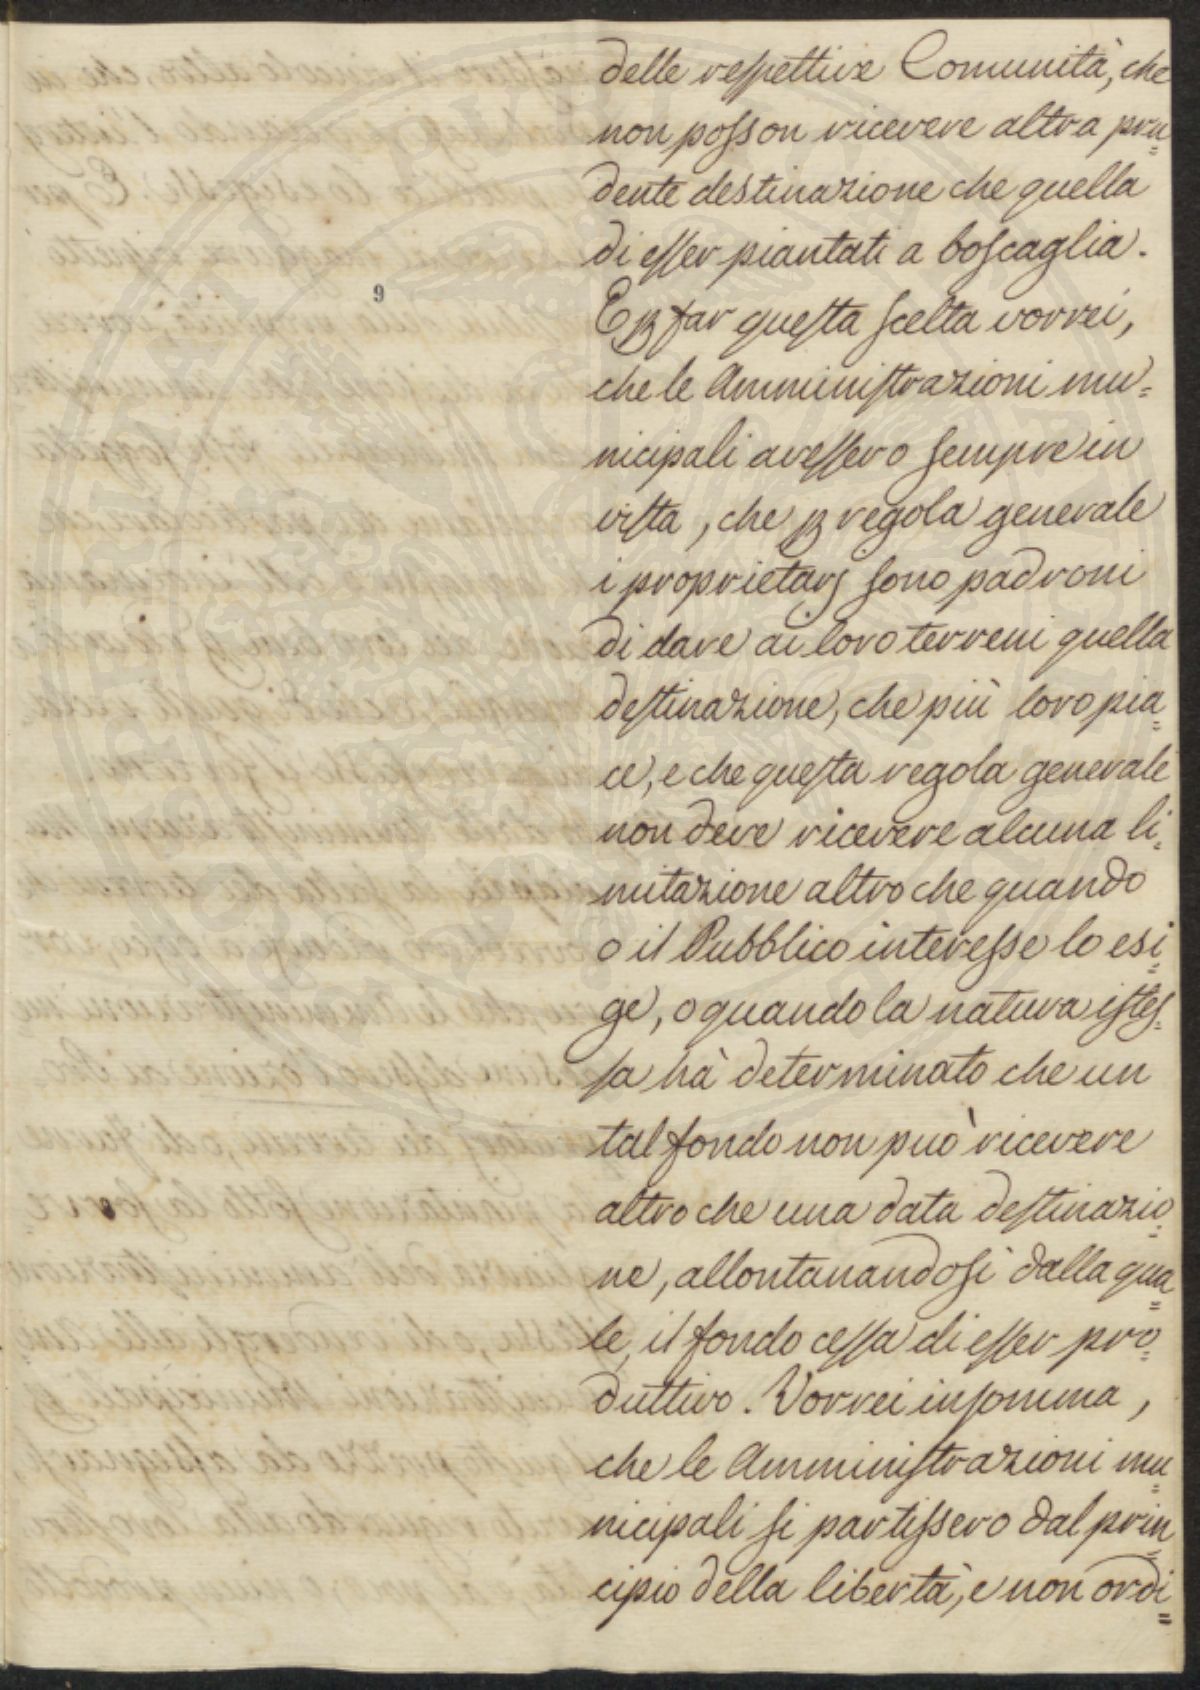 delle respettive Comunità, che
non posson ricevere altra pru=
dente destinazione che quella
di esser piantati a boscaglia.
9
E p far questa scelta vorrei,
che le Amministrazioni mu=
nicipali avessero sempre in
vista, che p regola generale
i proprietarj sono padroni
di dare ai loro terreni quella
destinazione, che più loro pia=
ce, e che questa regola generale
non deve ricevere alcuna li=
mitazione altro che quando
o il Pubblico interesse lo esi=
ge, o quando la natura istes=
sa hà determinato che un
tal fondo non può ricevere
altro che una data destinazio=
ne, allontanandosi dalla qua=
le, il fondo cessa di esser pro=
duttivo. Vorrei insomma,
che le Amministrazioni mu=
nicipali si partissero dal prin=
cipio della libertà, e non ordi=